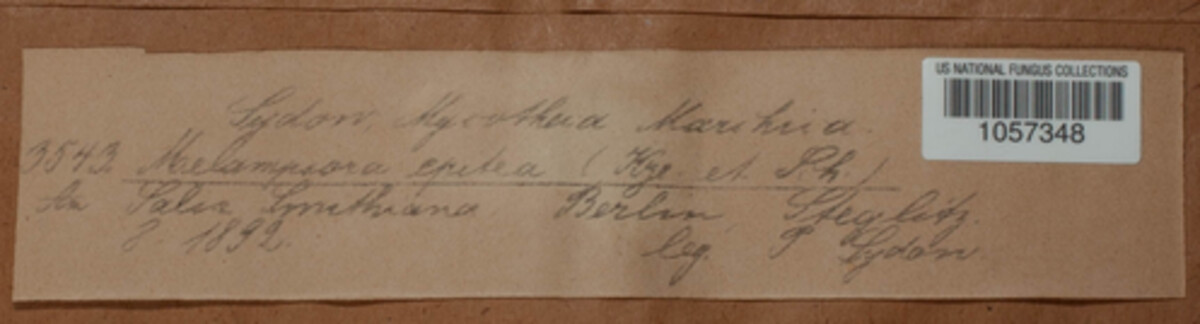 Sydow, Mycotheca Marchica.
US NATIONAL FUNGUS COLLECTIONS
1057348
3543. Melampsora epitea (Kze. et Sch.)
An Salix Smithiana. Berlin, Steglitz.
8. 1892. leg. P. Sydow